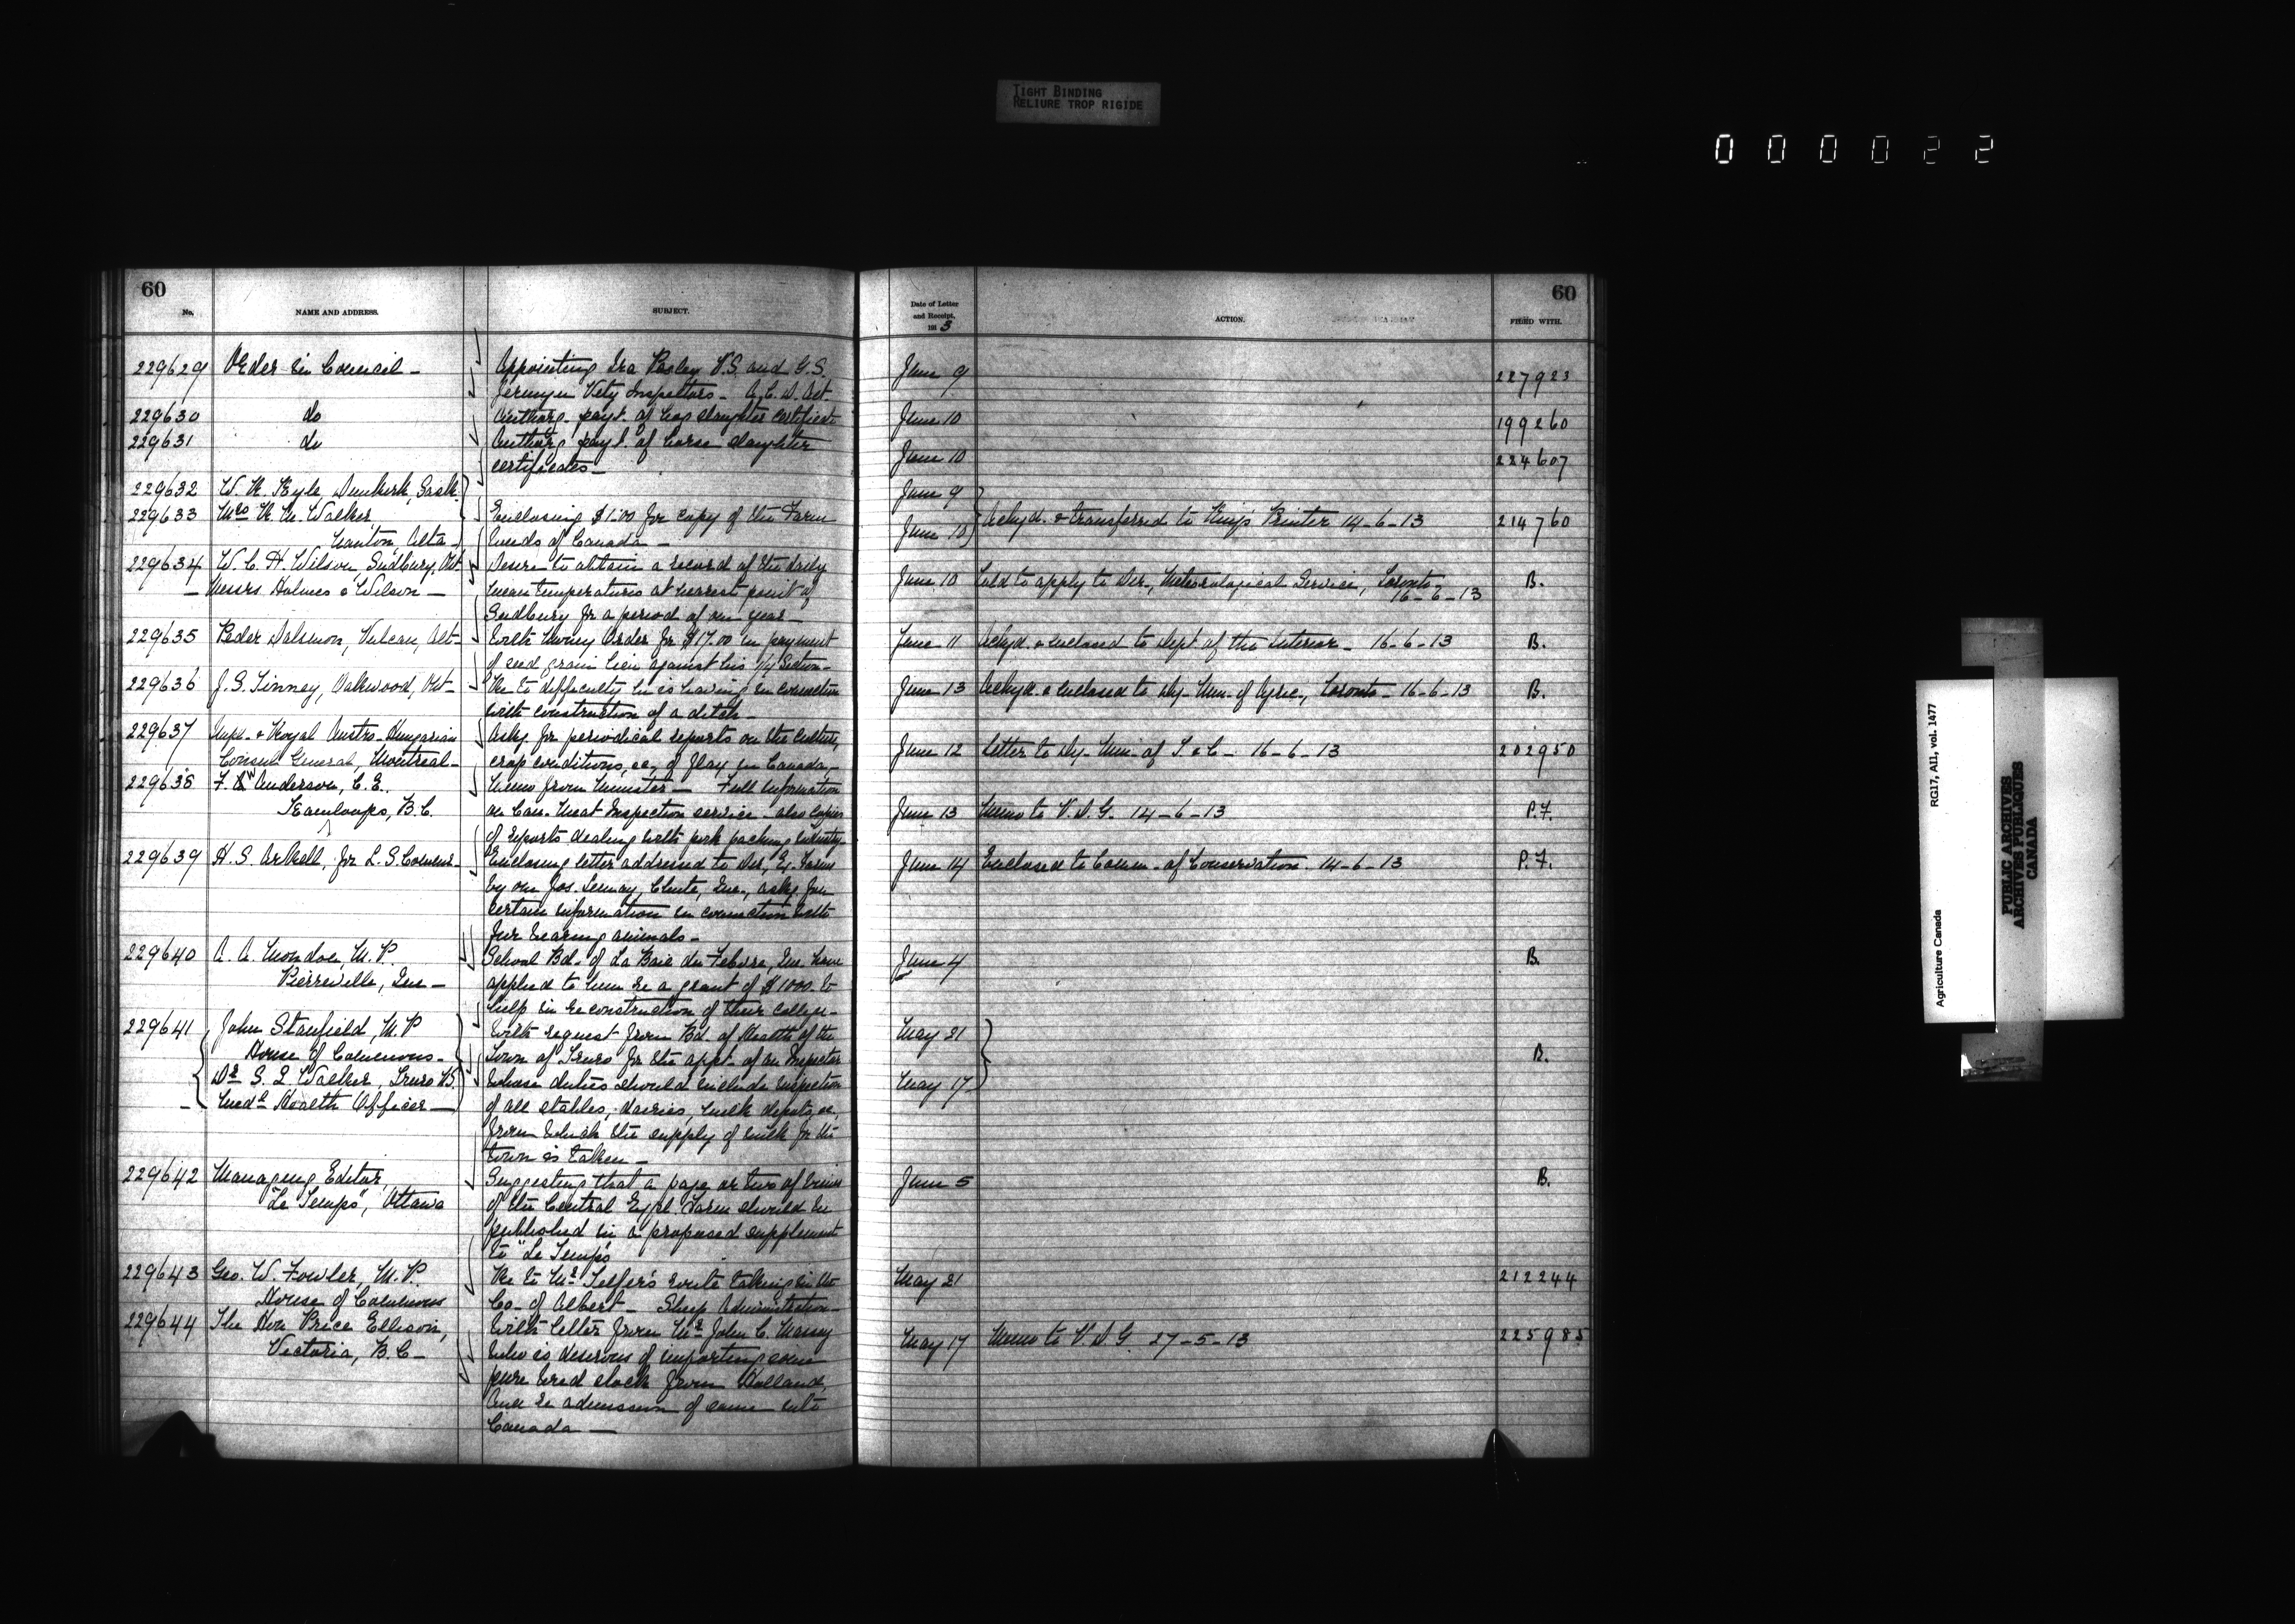 TIGHT BINDING
RELIURE TROP RIGIDE
000022
60
No.
NAME AND ADDRESS.
SUBJECT.
229629 Order in Council -
Appointing Ira Pasley V.S. and G.S.
Jermyn Vety Inspectors - A.C.D. Act
229630 do
Authorg. payt. of hog slaughter certifcs.
229631 do
Authorg payt. of horse slaughter
certificates -
229632 W. H. Kyle, Dunkirk, Sask.
229633 Mrs H. M. Walker
Nanton, Alta -
Enclosing $1.00 for copy of the Farm
Weeds of Canada -
229634 W. C. H. Wilson, Sudbury, Ont
- Messrs Holmes & Wilson -
Desire to obtain a record of the daily
mean temperatures at nearest point of
Sudbury for a period of one year -
229635 Peder Dalsmon, Vulcan, Alt -
With Money Order for $17.00 in payment
of seed grain lien against his 1/4 Section -
229636 J. S. Tinney, Oakwood, Ont -
Re to difficulty he is having in connection
with construction of a ditch -
229637 Impl. & Royal Austro-Hungarian
Consul General, Montreal -
Askg for periodical reports on the culture,
crop conditions, &c, of flax in Canada -
229638 F. W. Anderson, C. E.
Kamloops, B.C.
Memo from Minister - Full information
on Can. Meat Inspection service - also copies
of reports dealing with pork packing industry -
229639 H. S. Arkell, for L. S. Commr -
Enclosing letter addressed to Dir. Ex. Farms
by one Jos. Lemay, Chute, Que., askg for
certain information in connection with
fur bearing animals -
229640 A. A. Mondou, M. P.
Pierreville, Que -
School Bd. of La Baie du Febvre, Que. have
applied to him re a grant of $1000. to
help in reconstruction of their college -
229641 John Stanfield, M. P
House of Commons -
Dr S. L. Walker, Truro N.S.
- Medl Health Officer -
With request from Bd. of Health of the
Town of Truro for the appt. of an Inspector
whose duties should include inspection
of all stables, dairies, milk depots, &c,
from which the supply of milk for the
town is taken -
229642 Managing Editor,
"Le Temps", Ottawa
Suggesting that a page or two of views
of the Central Expl. Farm should be
published in a proposed supplement
to "Le Temps
229643 Geo. W. Fowler, M. P.
House of Commons
Re to Mr Telfer's route taking in the
Co. of Albert - Sheep Administration -
229644 The Hon Price Ellison,
Victoria, B.C -
With letter from Mr John C. Massy
who is desirous of importing some
pure bred stock from Holland,
and re admission of same into
Canada -
60
Date of Letter
and Receipt.
191 3
ACTION.
FILED WITH.
June 9 227923
June 10 199260
June 10 224607
June 9
June 10 Ackyd. & transferred to King's Printer 14-6-13 214760
June 10 Told to apply to Dir., Meteorological Service, Toronto - B.
16-6-13
June 11 Ackyd. & enclosed to Dept of the Interior - 16-6-13 B.
June 13 Ackyd. & enclosed to Dy. Min. of Agric., Toronto - 16-6-13 B.
June 12 Letter to Dy. Min. of T & C - 16-6-13 202950
June 13 Memo to V. D. G. 14-6-13 P.F.
June 14 Enclosed to Comm. of Conservation. 14-6-13 P.F.
June 4 B.
May 21
B.
May 17
June 5 B.
May 21 212244
May 17 Memo to V. D G 27-5-13 225985
Agriculture Canada
RG17, AII, vol. 1477
PUBLIC ARCHIVES
ARCHIVES PUBLIQUES
CANADA